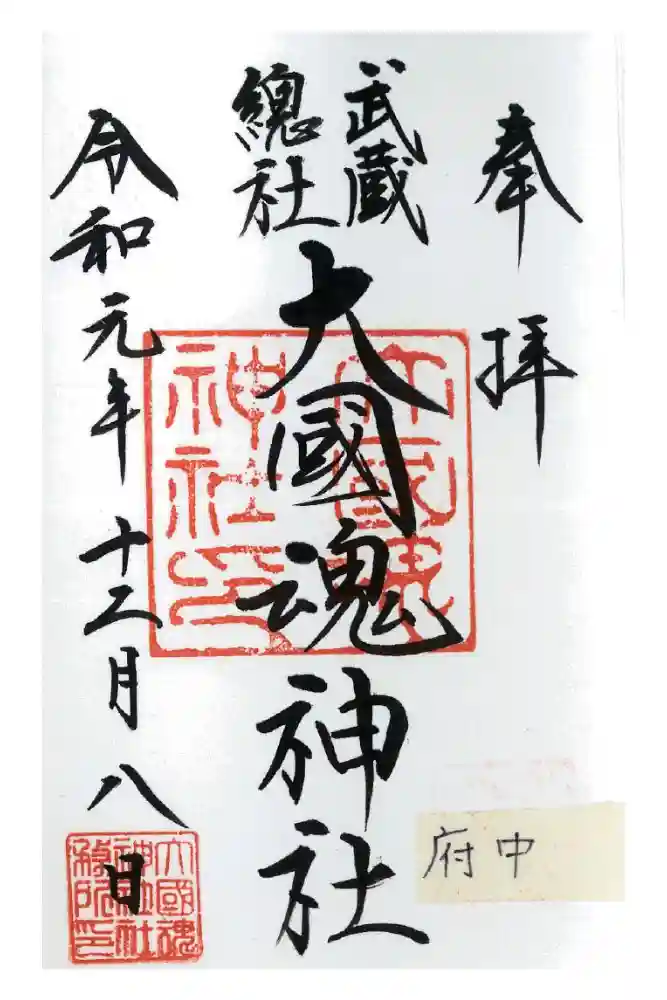 奉拝
武蔵
總社
大國魂神社
令和元年十二月八日
大國魂
神社印
大國魂
神社
府中